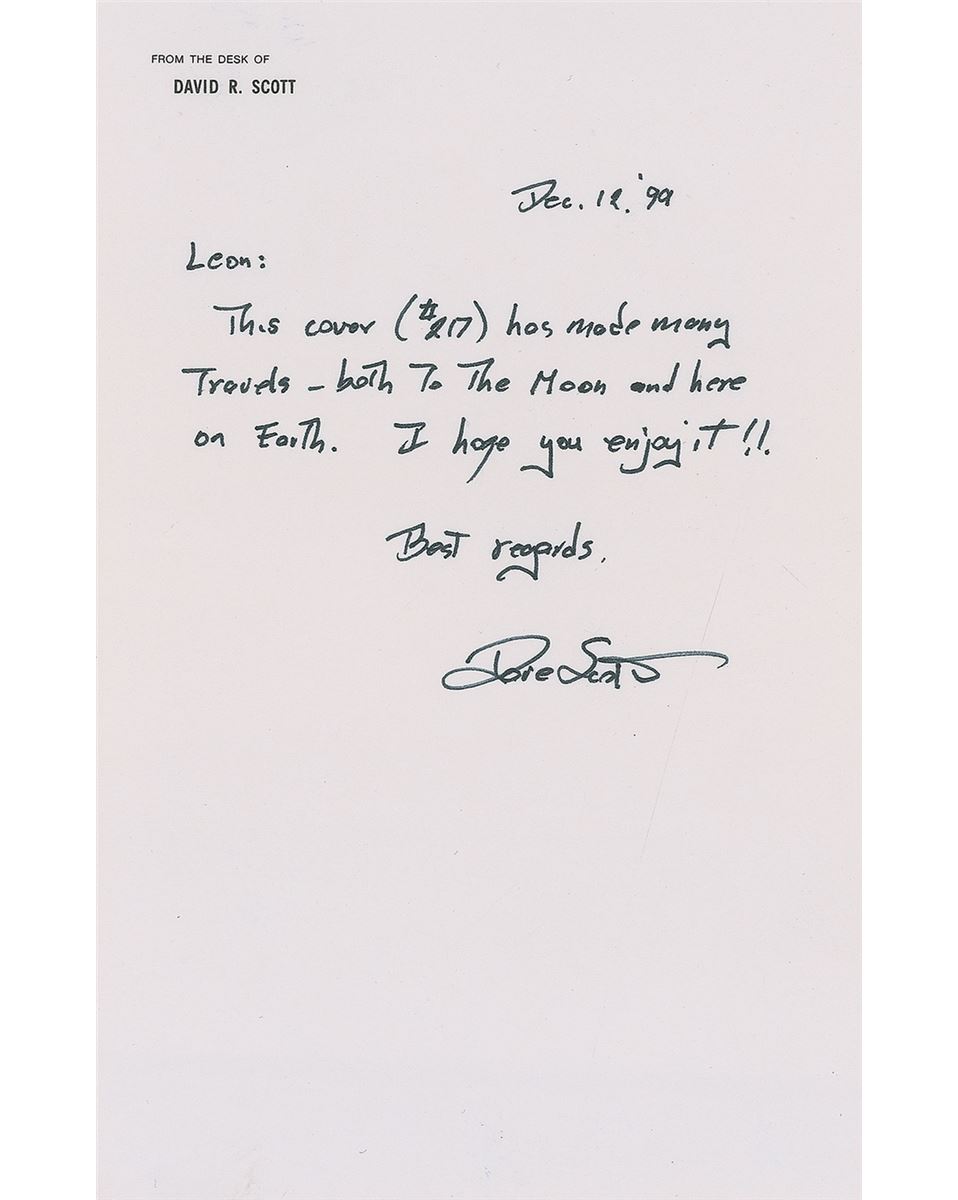 FROM THE DESK OF
DAVID R. SCOTT
Dec. 12. '99
Leon:
This cover (#217) has made many
Travels – both To The Moon and here
on Earth. I hope you enjoy it!!
Best regards,
Dave Scott